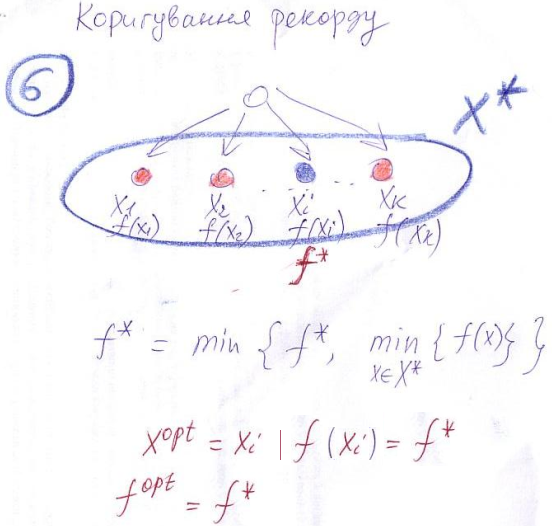 Коригування рекорду
6
X*
x1 x2 . . . xi . . . xk
f(x1) f(x2) f(xi) f(xk)
f*
f* = min { f*, min { f(x) } }
x∈X*
x^opt = xi | f(xi) = f*
f^opt = f*